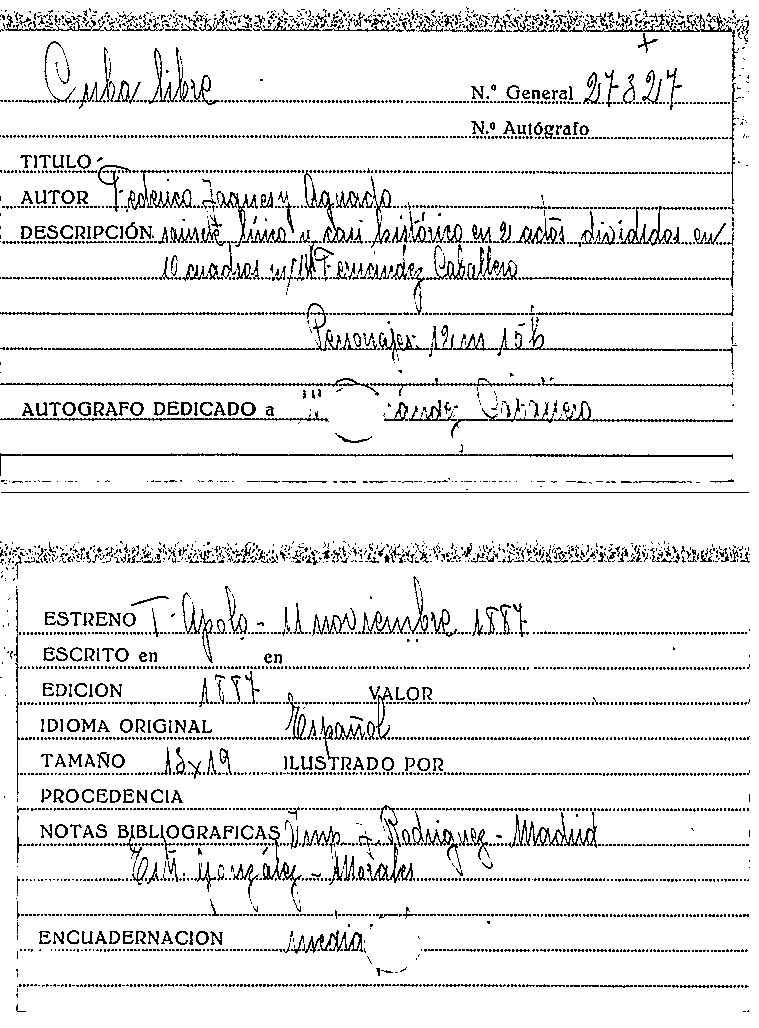 Cuba libre
N.º General 27327
N.º Autógrafo
TITULO
AUTOR Federico Jaques y Aguado
DESCRIPCIÓN sainete lírico y casi histórico en 2 actos divididos en
10 cuadros m/ M Fernández Caballero
Personajes: 12 m 15 h
AUTOGRAFO DEDICADO a ández Caballero
ESTRENO T. Apolo - 11 noviembre 1887
ESCRITO en en
EDICION 1887 VALOR
IDIOMA ORIGINAL Español
TAMAÑO 13x19 ILUSTRADO POR
PROCEDENCIA
NOTAS BIBLIOGRAFICAS Imp. J. Rodriguez - Madrid
González - Morales
ENCUADERNACION media